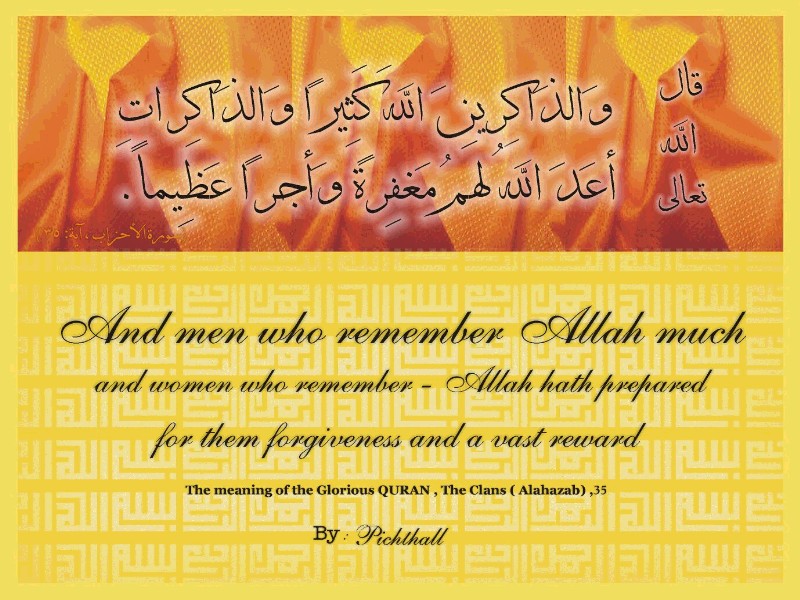 قال
الله
تعالى
وَالذَاكرِينَ اللهَ كَثيراً وَالذاكراتِ
أعدَ اللهُ لهُم مَغفِرةً وَأجراً عَظِيماً.
سورة الأحزاب، آية: ٣٥
And men who remember Allah much
and women who remember - Allah hath prepared
for them forgiveness and a vast reward
The meaning of the Glorious QURAN , The Clans ( Alahazab) ,35
By : Pichthall